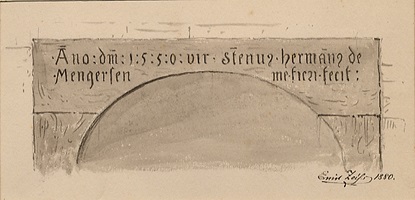 ·Āno:dm̄:1:5:5:0:vir·stenuꝯ·hermānꝯ de
·Mengersen me·fieri·fecit:
Emil Zeiß, 1880.